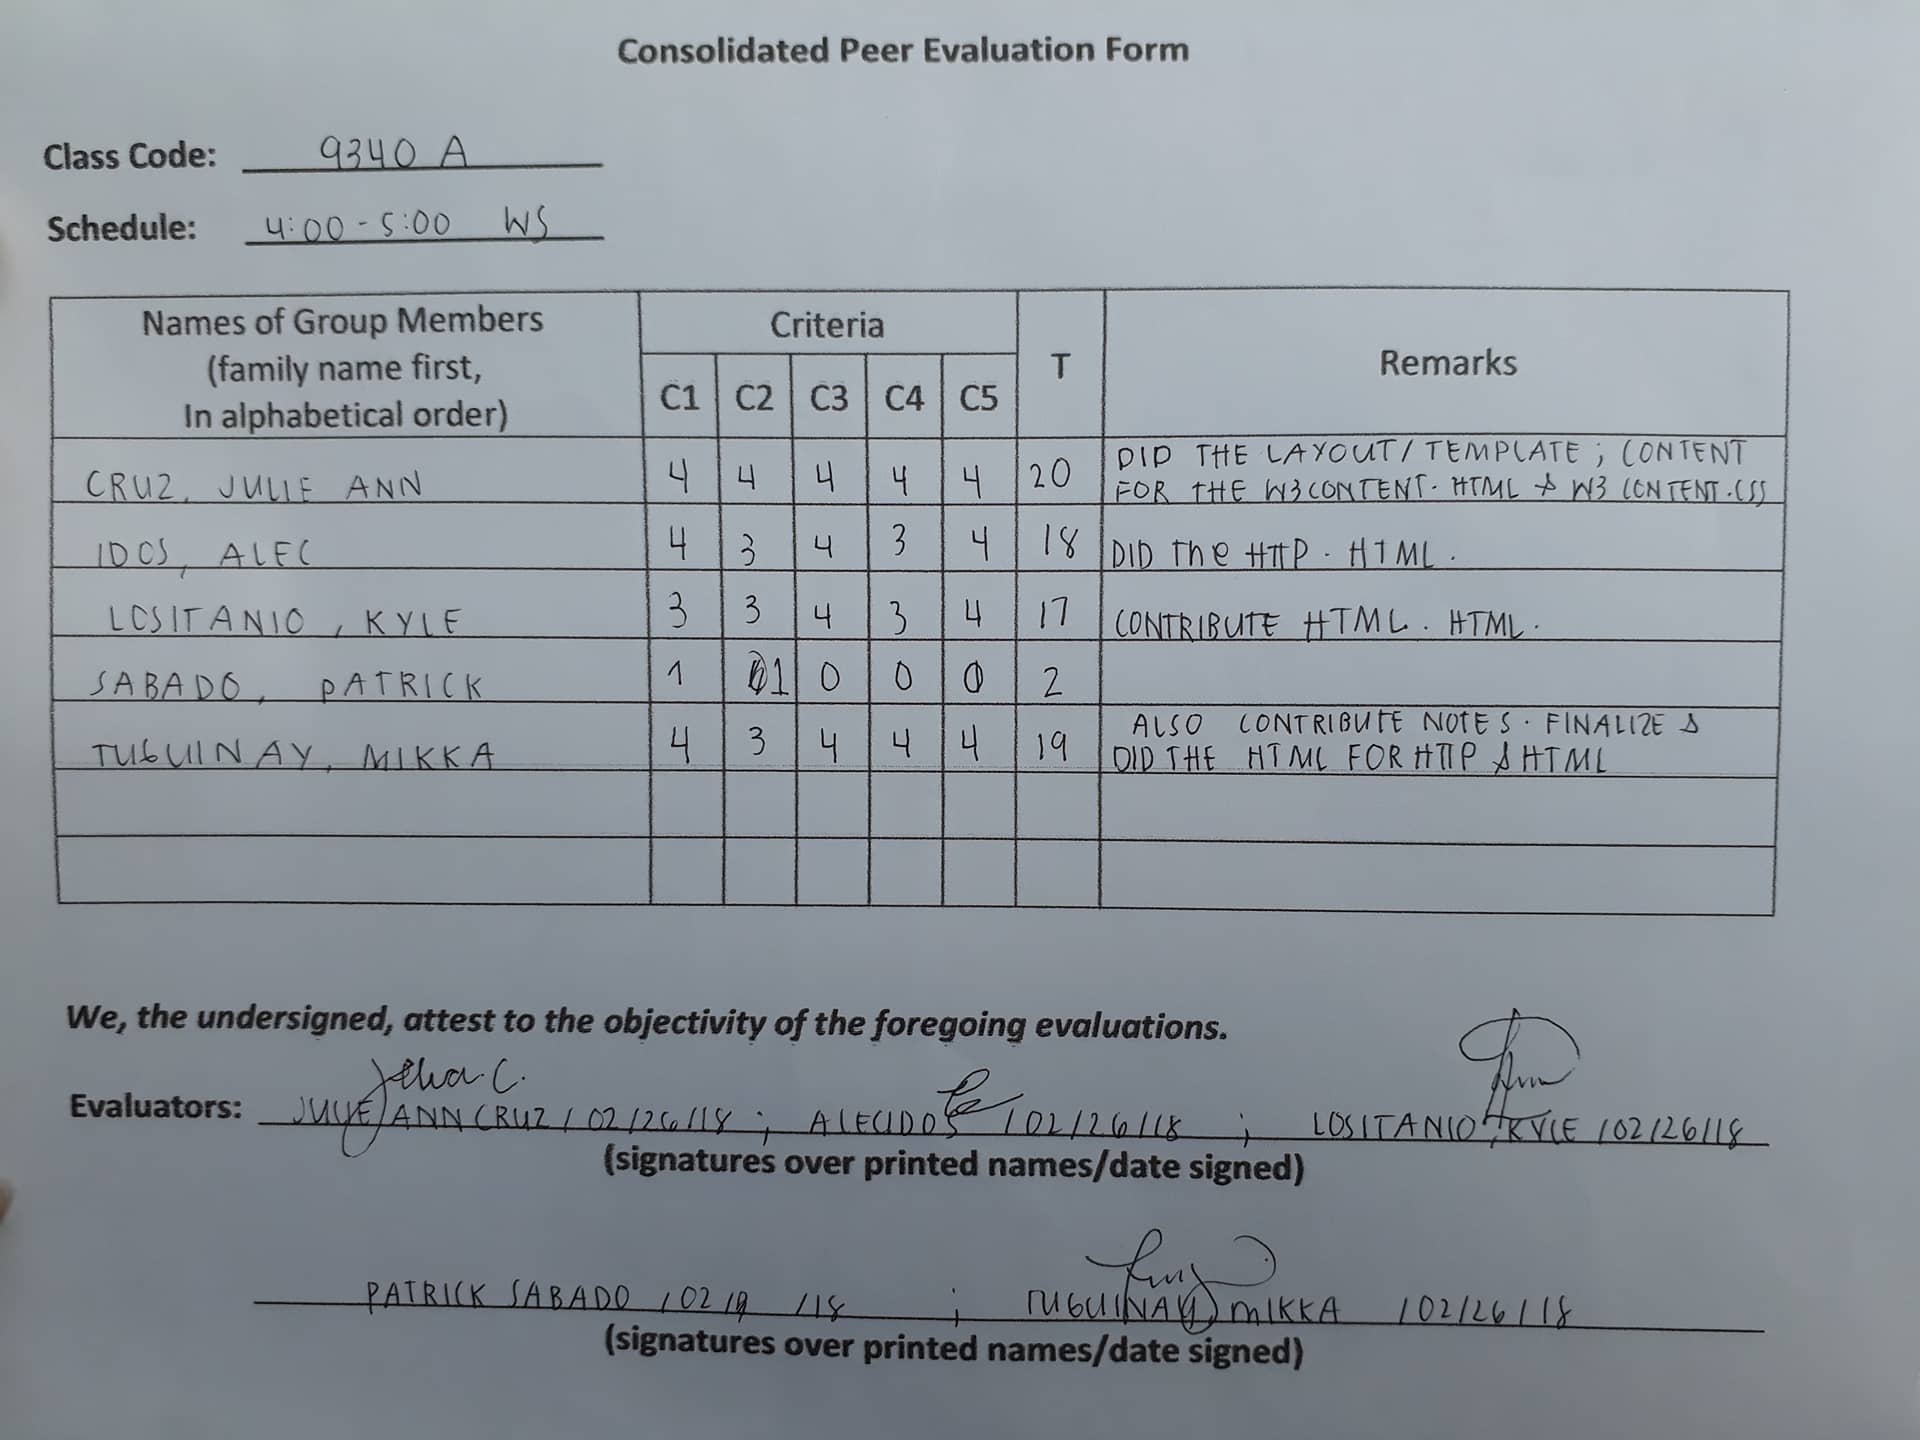 Consolidated Peer Evaluation Form
Class Code: 9340 A
Schedule: 4:00 - 5:00 WS
Names of Group Members
(family name first,
In alphabetical order)
Criteria
C1 C2 C3 C4 C5
T
Remarks
CRUZ, JULIE ANN 4 4 4 4 4 20 DID THE LAYOUT / TEMPLATE ; CONTENT
FOR THE W3CONTENT. HTML & W3 CONTENT.CSS
IDOS, ALEC 4 3 4 3 4 18 DID The HTTP . HTML .
LOSITANIO, KYLE 3 3 4 3 4 17 CONTRIBUTE HTML . HTML.
SABADO, PATRICK 1 1 0 0 0 2
TUGUINAY, MIKKA 4 3 4 4 4 19 ALSO CONTRIBUTE NOTES. FINALIZE &
DID THE HTML FOR HTTP & HTML
We, the undersigned, attest to the objectivity of the foregoing evaluations.
Evaluators: JULIE ANN CRUZ / 02/26/18 ; ALEC IDOS / 02/26/18 ; LOSITANIO, KYLE / 02/26/18
(signatures over printed names/date signed)
PATRICK SABADO / 02 / /18 ; TUGUINAY, MIKKA / 02/26/18
(signatures over printed names/date signed)